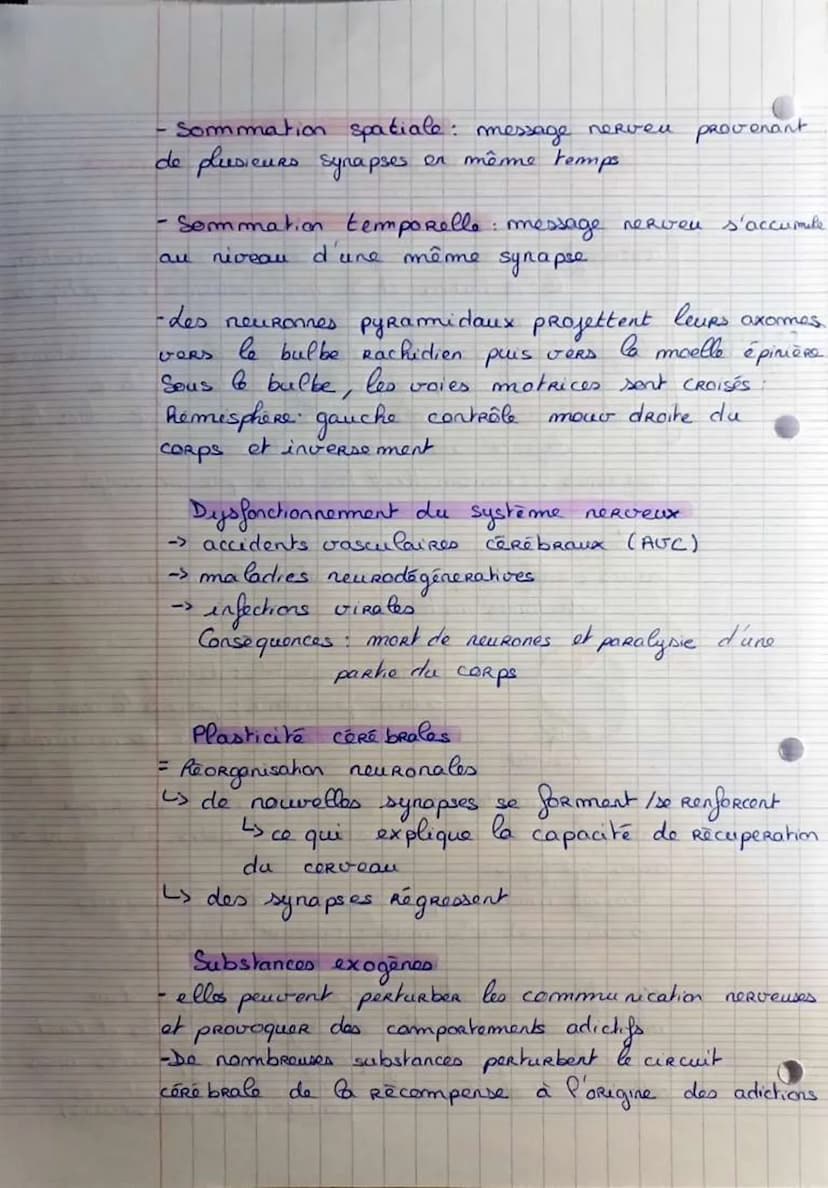 - Sommation spatiale : message nerveu provenant
de plusieurs synapses en même temps
- Sommation temporelle : message nerveu s'accumule
au niveau d'une même synapse
- des neuronnes pyramidaux projettent leurs axomes
vers le bulbe rachidien puis vers la moelle épinière.
Sous le bulbe, les voies motrices sont croisés :
hémisphère gauche contrôle mouv droite du
corps et inversement
Dysfonctionnement du système nerveux
-> accidents vasculaires cérébraux (AVC)
-> maladies neurodégéneratives
-> infections virales
Conséquences : mort de neurones et paralysie d'une
partie du corps
Plasticité cérébrales
= Réorganisation neuronales
↳ de nouvelles synapses se forment / se renforcent
↳ ce qui explique la capacité de récuperation
du cerveau
↳ des synapses régressent
Substances exogènes
- elles peuvent perturber les communication nerveuses
et provoquer des comportements adictifs
- De nombreuses substances perturbent le circuit
cérébrale de la récompense à l'origine des adictions